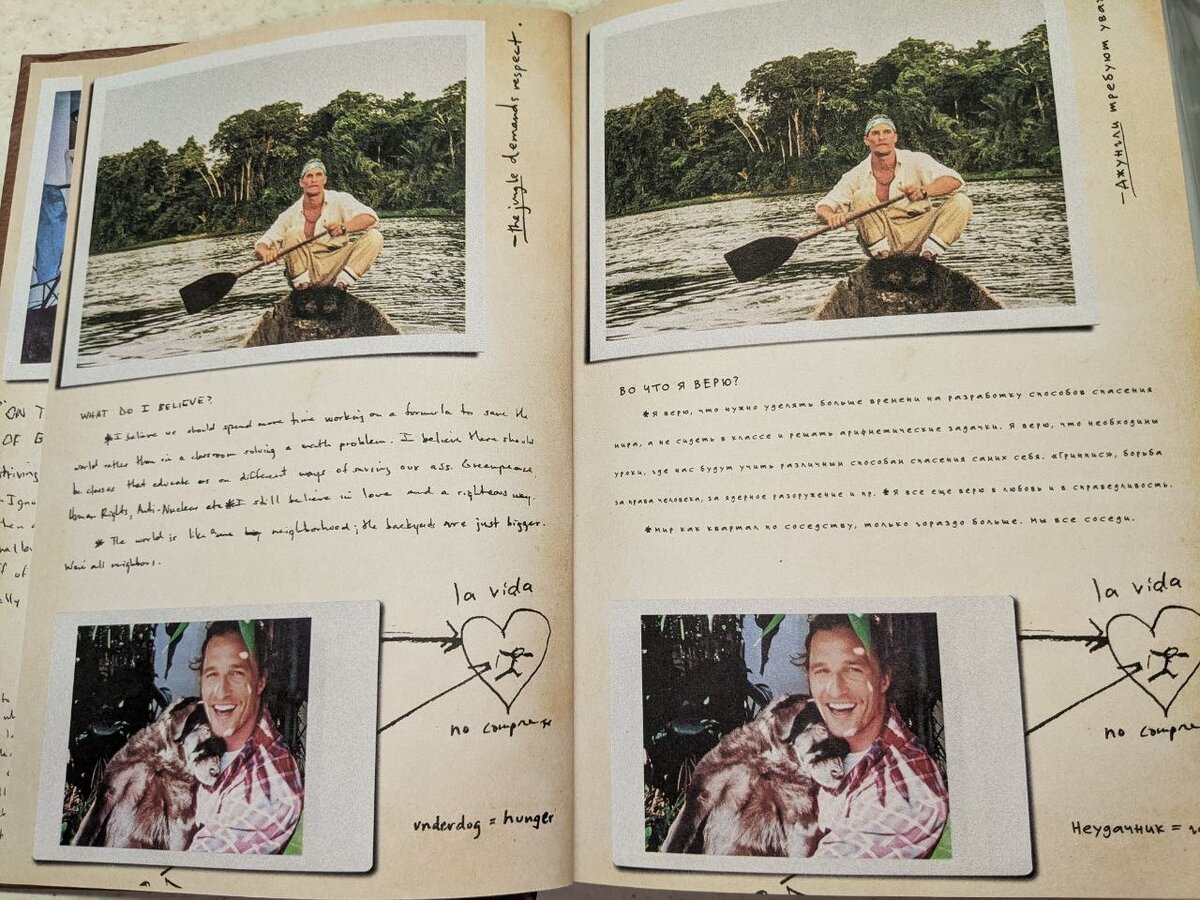 "ON T
OF G
- the jungle demands respect.
WHAT DO I BELIEVE?
*I believe we should spend more time working on a formula to save the
world rather than in a classroom solving a math problem. I believe there should
be classes that educate us on different ways of saving our ass. Greenpeace,
Human Rights, Anti-Nuclear etc *I still believe in love and a righteous way.
* The world is like neighborhood; the backyards are just bigger.
We're all neighbors.
la vida
no compre
underdog = hunger
- Джунгли требуют ува
ВО ЧТО Я ВЕРЮ?
*Я верю, что нужно уделять больше времени на разработку способов спасения
мира, а не сидеть в классе и решать арифметические задачки. Я верю, что необходимы
уроки, где нас будут учить различным способам спасения самих себя. «Гринпис», борьба
за права человека, за ядерное разоружение и пр. *Я все еще верю в любовь и в справедливость.
*Мир как квартал по соседству, только гораздо больше. Мы все соседи.
la vida
no compre
Неудачник =